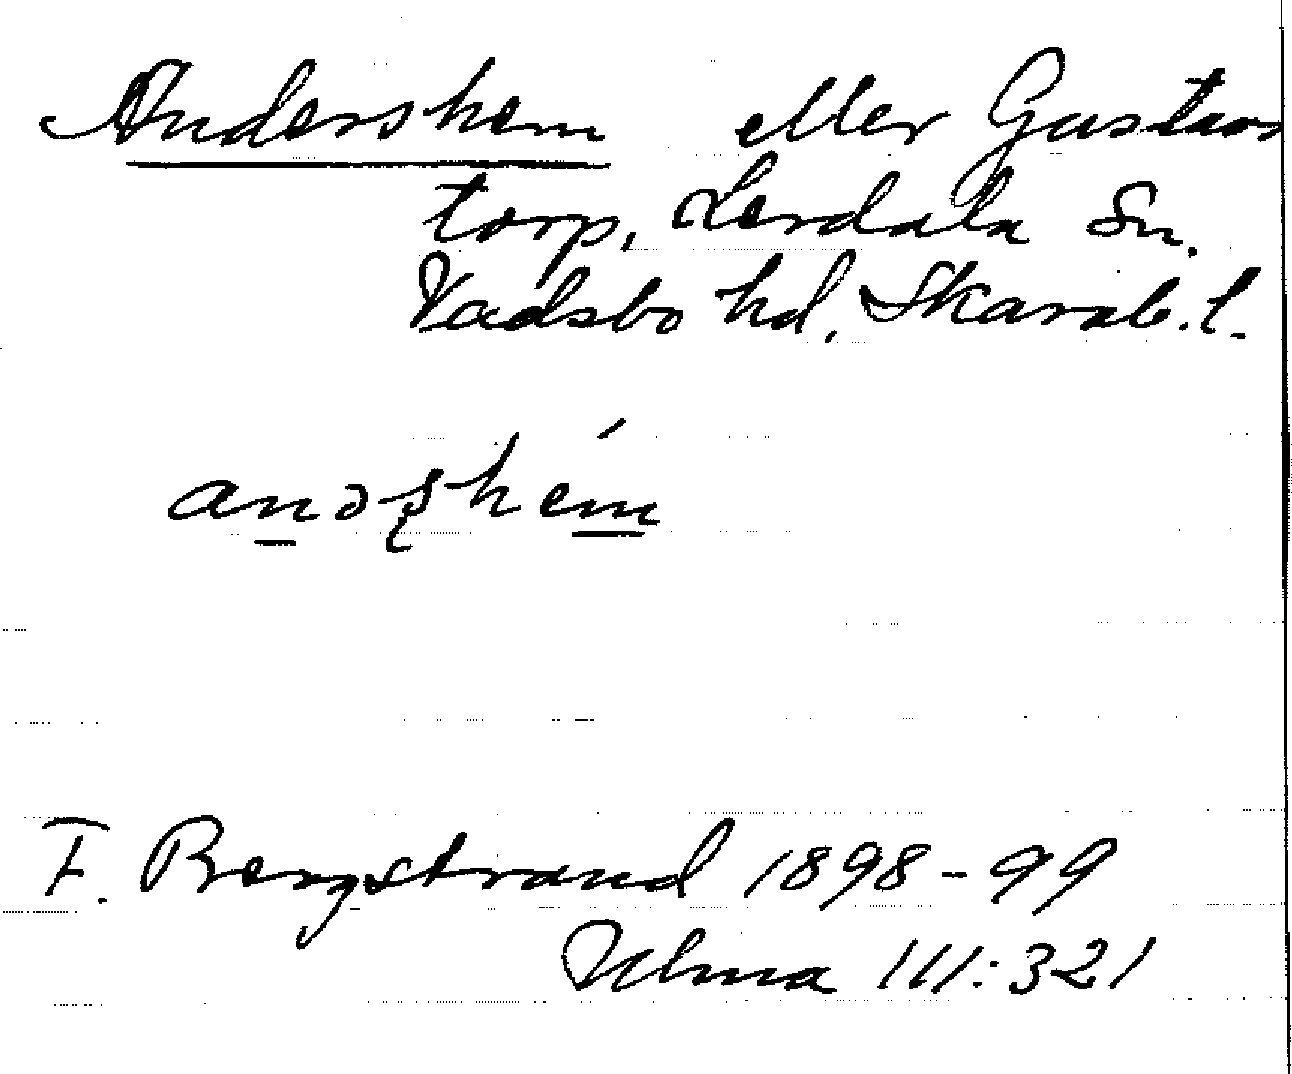 Andershem eller Gustavs
torp, Lerdala Sn.
Vadsbo hd, Skarab. l.
andʂhém
F. Bergstrand 1898-99
Ulma 111:321